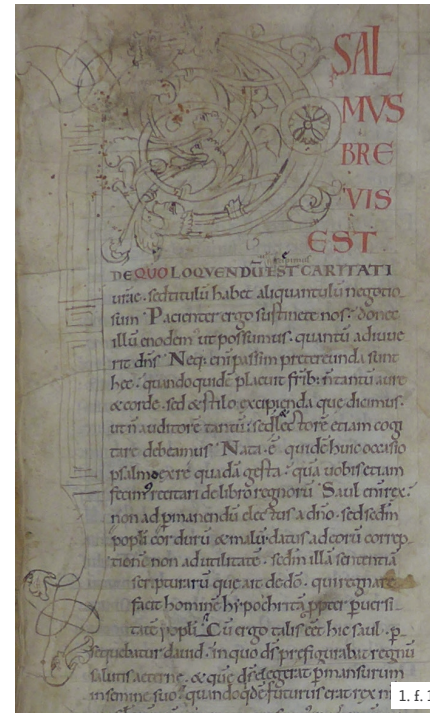 SAL
MVS
BRE
VIS
EST
DE QUO LOQVENDŪ EST CARITATI
urāe · sed titulū habet aliquantulū negotio
sum Pacienter ergo sustinete nos · donec
illū enodem ut possumus · quantū adiuue
rit dn̄s Neq; eni passim pretereunda sunt
hec · quandoquidē placuit frīb; n̄ tantū aure
& corde · sed & stilo excipienda que dicimus ·
ut n̄ auditorē tantū · sed lectorē etiam cogi
tare debeamus Nata · ē · quidē huic occasio
psalmo ex re quadā gesta · quā uobis etiam
fecim' recitari de libro regnorū Saul eni rex ·
non ad ꝑmanendū electus a dn̄o · sed sedm
popli cor durū & malū · datus ad eorū correp
tionē non ad utilitatē · sedm illā sententiā
scripturarū que ait de dō · qui regnare
facit hominē hypochritā ꝓpter ꝑuersi
tatē popli Cū ergo talis eēt hic saul · ꝑ
sequebatur dauid · in quo ds̄ prefigurabat regnū
salutis aeterne · & quē ds̄ delegerat ꝑmansurum
in semine suo · quandoqdē futurus erat rex n
1. f. 1